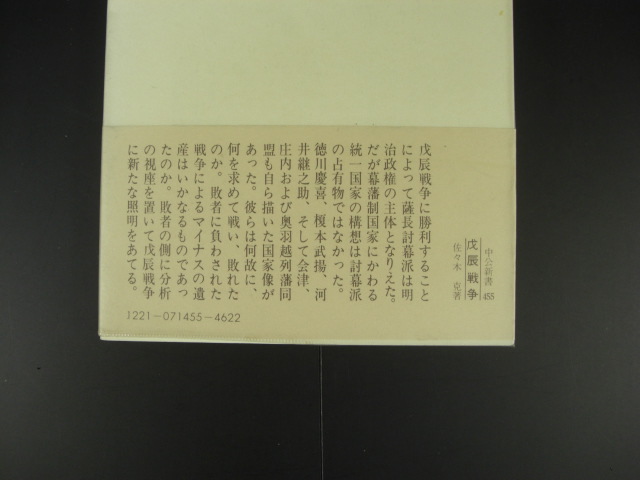 中公新書 455
戊辰戦争
佐々木 克著
戊辰戦争に勝利すること
によって薩長討幕派は明
治政権の主体となりえた。
だが幕藩制国家にかわる
統一国家の構想は討幕派
の占有物ではなかった。
徳川慶喜、榎本武揚、河
井継之助、そして会津、
庄内および奥羽越列藩同
盟も自ら描いた国家像が
あった。彼らは何故に、
何を求めて戦い、敗れた
のか。敗者に負わされた
戦争によるマイナスの遺
産はいかなるものであっ
たのか。敗者の側に分析
の視座を置いて戊辰戦争
に新たな照明をあてる。
J221-071455-4622